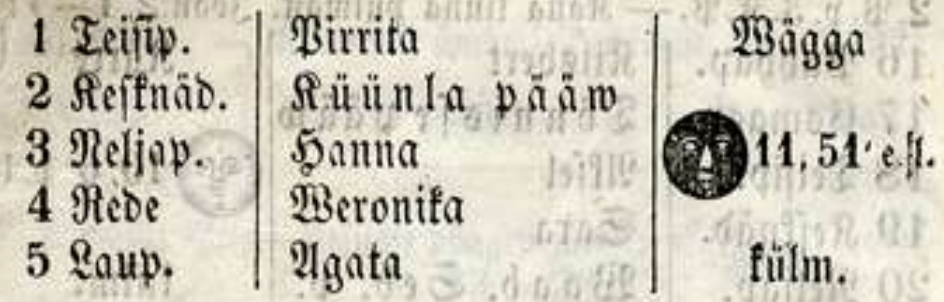 1 Teisip. Pirrita Wägga
2 Kesknäd. Küünla pääw
3 Neljap. Hanna 11, 51' e. fl.
4 Rede Weronika
5 Laup. Agata külm.